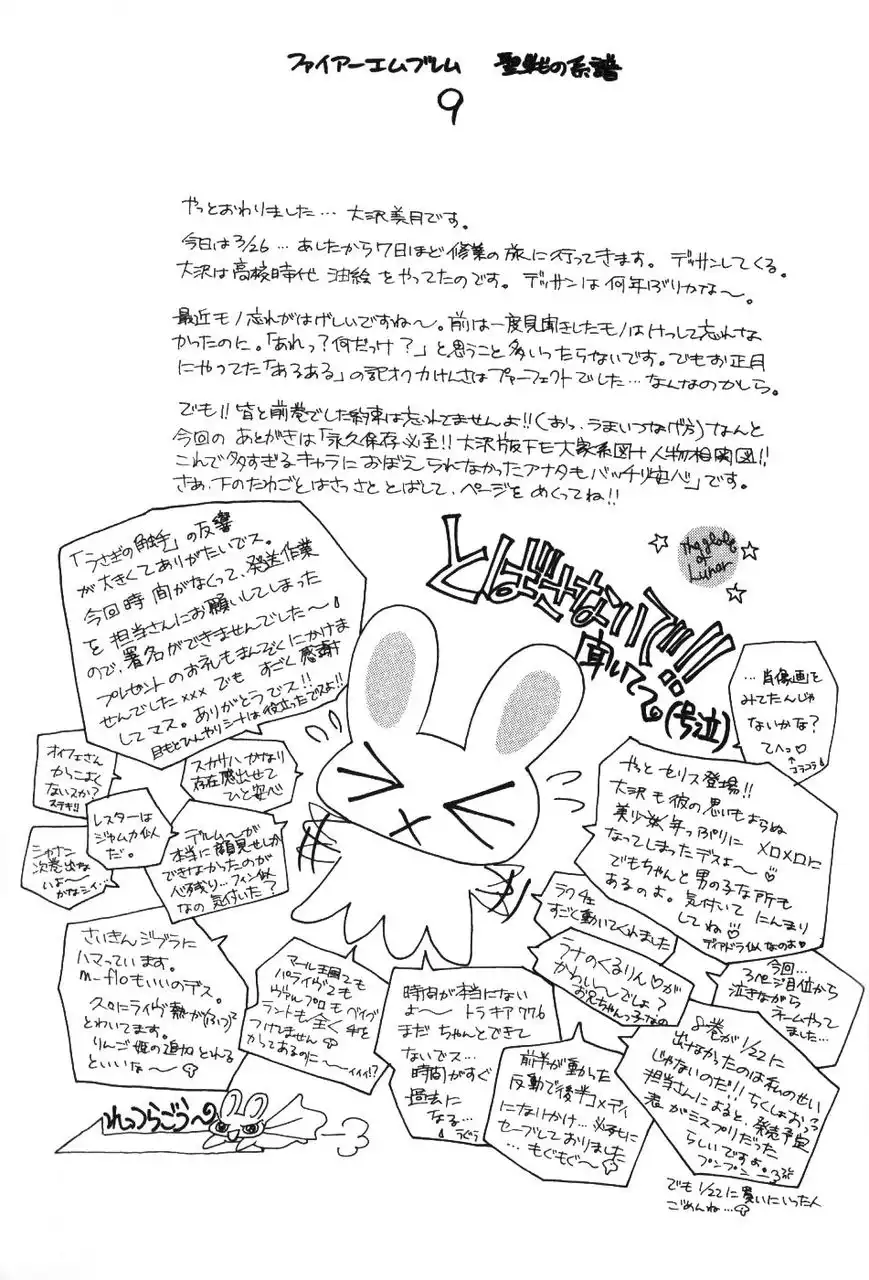 ファイアーエムブレム 聖戦の系譜
9
やっとおわりました…大沢美月です。
今日は3/26…あしたから7日ほど修業の旅に行ってきます。デッサンしてくる。
大沢は高校時代 油絵をやってたのです。デッサンは何年ぶりかな〜。
最近モノ忘れがはげしいですね〜。前は一度見聞きしたモノはけっして忘れな
かったのに。「あれっ?何だっけ?」と思うこと多いったらないです。でもお正月
にやってた「あるある」の記オク力けんさはプァーフェクトでした…なんなのかしら。
でも!!皆と前巻でした約束は忘れてませんよ!!(おっ、うまいつなげ方)なんと
今回のあとがきは「永久保存必至!!大沢版下モ大家系図+人物相関図!!
これで多すぎるキャラにおぼえられなかったアナタもバッチリ安心」です。
さあ、下のたわごとはさっさととばして、ページをめくってね!!
とばさないで!!
聞いてて。(号泣)
The globe of Lunar
「うさぎの触手」の反響
が大きくてありがたいでス。
今回時間がなくって、発送作業
を担当さんにお願いしてしまった
ので、署名ができませんでした〜
プレゼントのお礼もまんぞくにかけま
せんでした×××でも すごく感謝
してマス。ありがとうでス!!
目もとひんやりシートは役立ったでスよ!!
…肖像画を
みてたんじゃ
ないかな?
てへっ
コラコラ
オイフェさん
かっこよく
ないスか?
ステキ!!
スカサハ かなり
存在感出せて
ひと安心
レスターは
ジャムカ似
だ。
シャナン
次巻出な
いよ〜
かなシイ…
デルム〜が
本当に顔見せしか
できなかったのが
心残り…フィン似
なの 気付いた?
やっとセリス登場!!
大沢も彼の思いもよらぬ
美少年っぷりにメロメロに
なってしまったデスよ〜♡
でもちゃんと男の子な所も
あるのよ。気付いて にんまり
してね♡
ディアドラ似なのよ♡
ラクチェ
すごく動いてくれました
ラナのくるりん♡が
かわい〜でしょ?
お兄ちゃんっ子なの
さいきんジブラに
ハマっています。
m-floもいいのデス。
久々にライヴ熱が
とわいてます。
りんご姫の追加とれる
といいな〜
マール王国2も
パライヴ2も
ヴァルプロもベイグ
ラントも全く手を
つけません
かってあるのに〜
ィィィ!?
時間が本当にない
よ〜 トラキア776
まだちゃんとできて
ないでス…
時間がすぐ
過去に
なる…
うぐぅ
前半が動いた
反動で後半コメディ
にないかけ…必死に
セーブしておりました
…もぐもぐ〜
今回…
3ページ目位から
泣きながら
ネームやって
ました…
8巻が1/22に
出なかったのは私のせい
じゃないのだ!!ちくしょおっ
担当さんによると、発売予定
表がミスプリだった
らしいですよ。
プンプン
でも1/22に買いにいった人
ごめんね…
れっつらごう〜